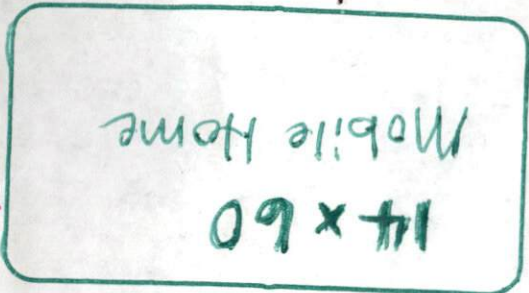 14 x 60
Mobile Home